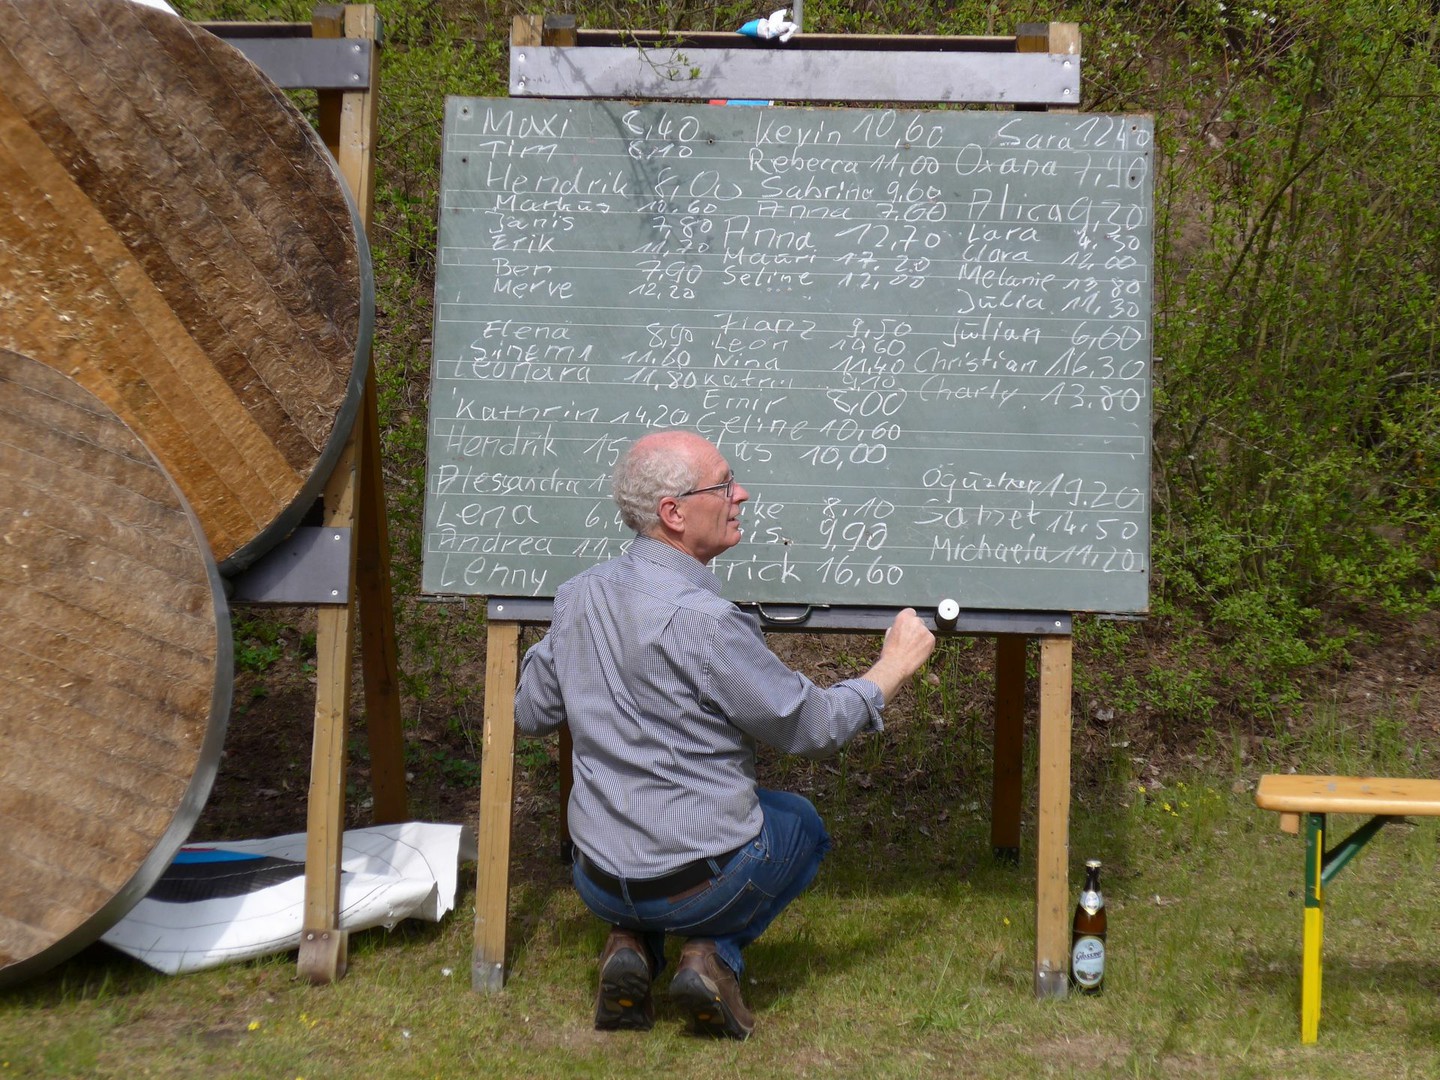 Maxi 8,40 Kevin 10,60 Sara 12,40
Tim 8,10 Rebecca 11,00 Oxana 7,90
Hendrik 8,00 Sabrina 9,60
Markus 10,60 Anna 7,60 Alica 9,20
Janis 7,80 Anna 12,70 Lara
Erik Mauri 17,20 Clara 12,00
Ben 7,90 Seline 12,00 Melanie 13,80
Merve 12,20 Julia 11,30
Elena 8,90 Franz 9,50 Julian 6,60
11,60 Leon Christian 16,30
Leonara 11,80 Nina 11,40 Charly 13,80
9,10
Emir 8,00
Kathrin 14,20 Celine 10,60
Hendrik 15 as 10,00
Alessandra 1 19,20
Lena 6, ke 8,10 Samet 14,50
Andrea 11,8 is 9,90 Michaela 11,20
Lenny trick 16,60